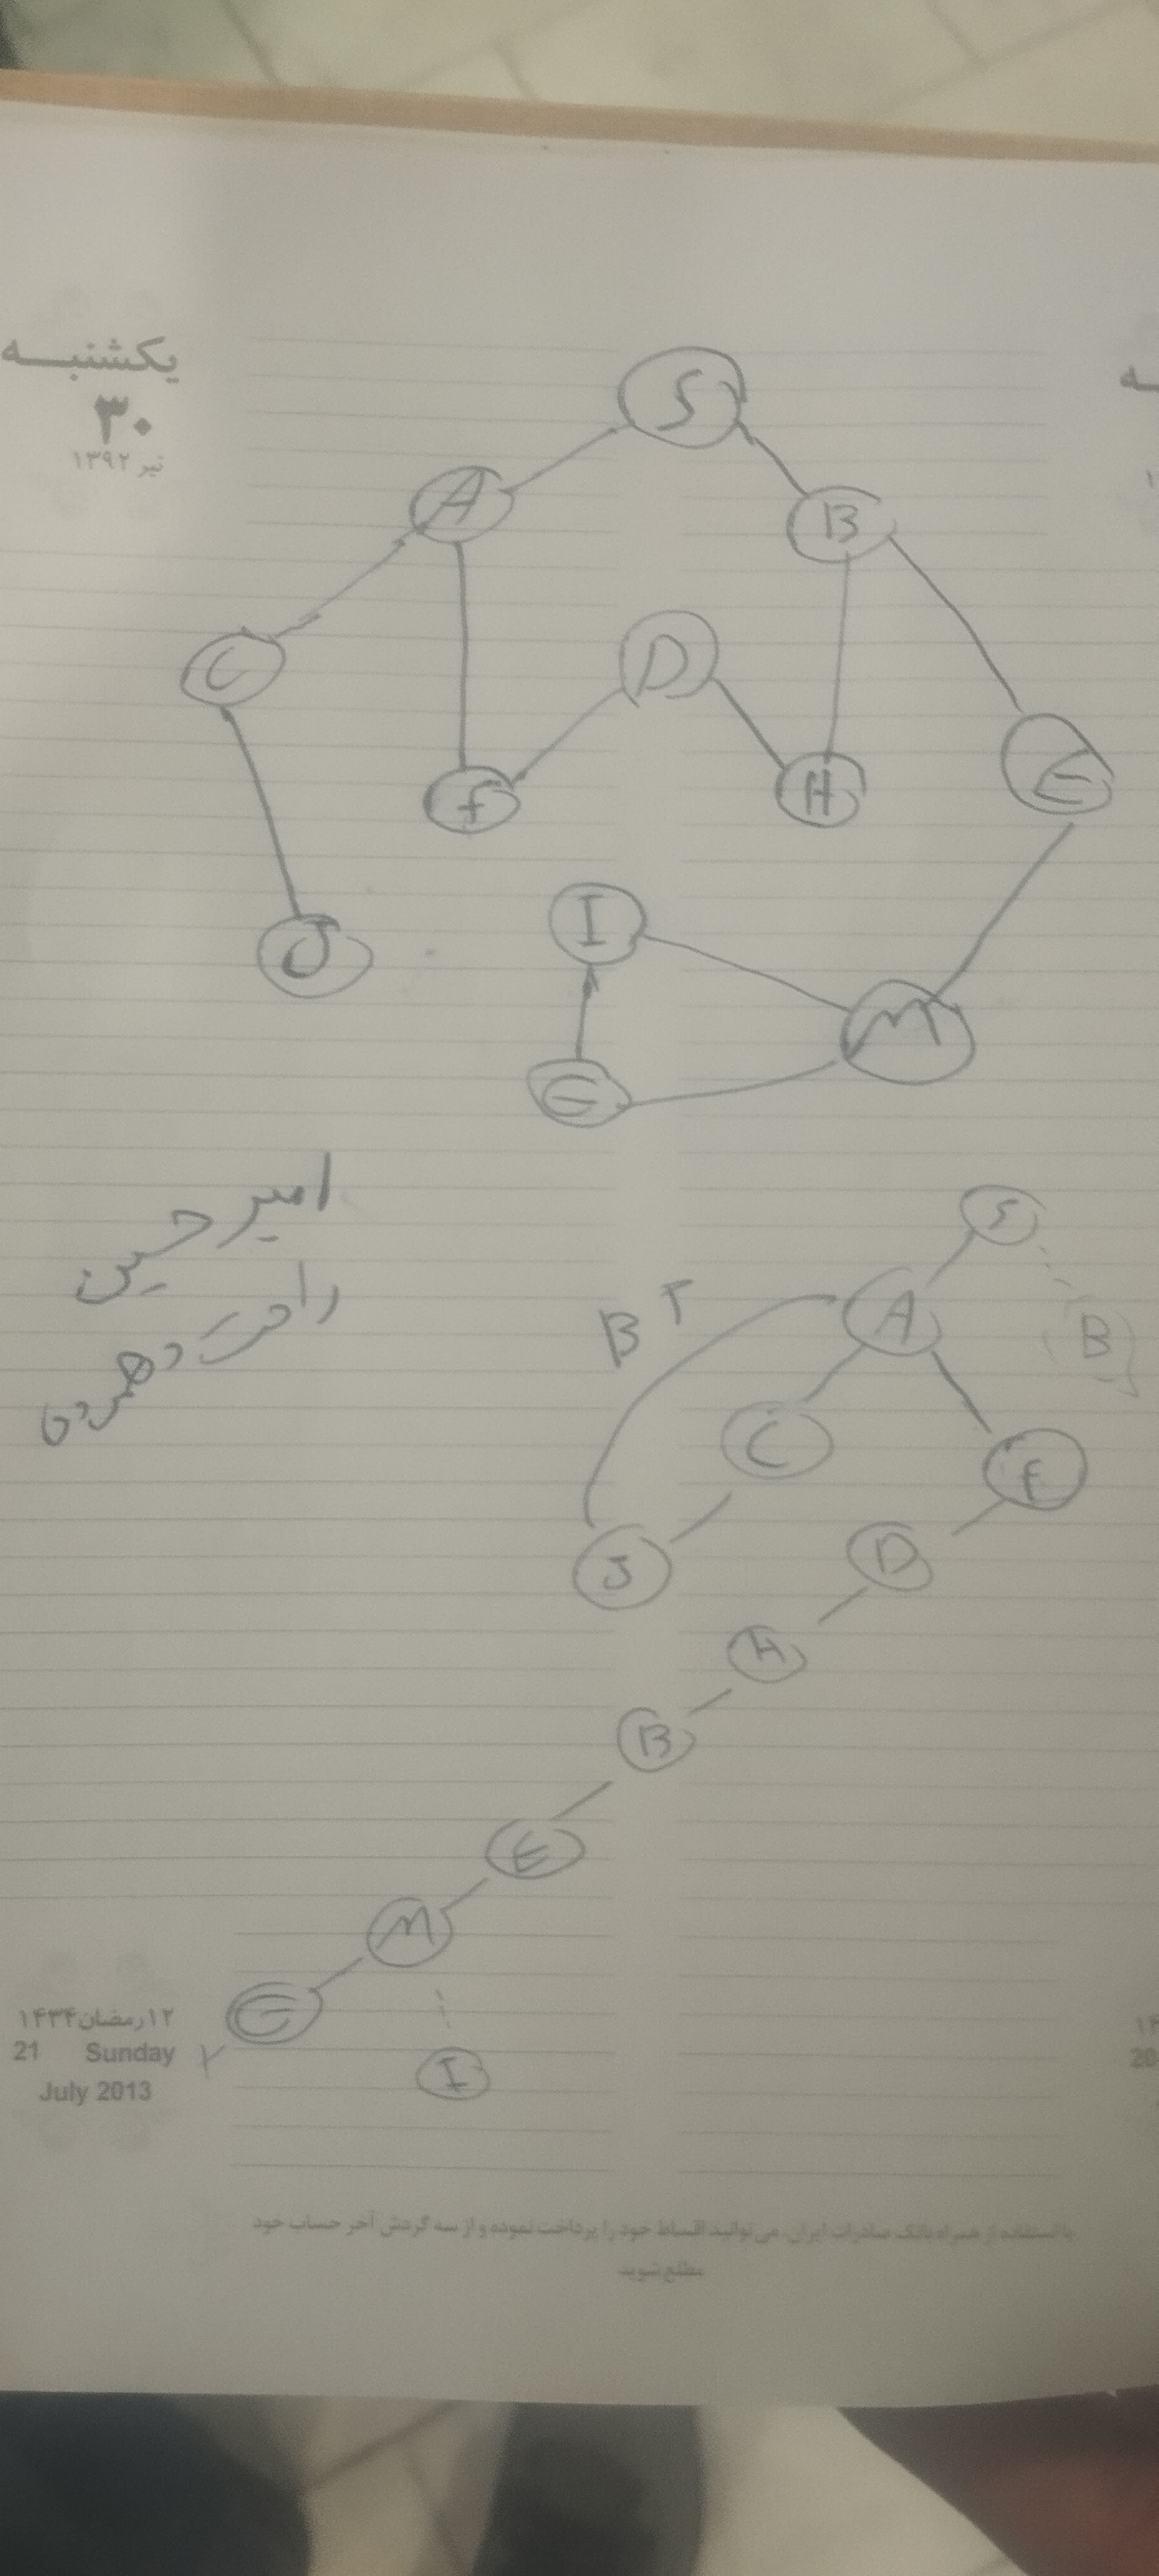 یکشنبه
۳۰
تیر ۱۳۹۲
S
A
B
C
D
E
F
H
I
J
M
G
امیر حسین
راحت دهمرده
S
BT
A
B
C
F
J
D
H
B
E
M
G
I
۱۲رمضان۱۴۳۴
21 Sunday
July 2013
با استفاده از همراه بانک صادرات ایران، می‌توانید اقساط خود را پرداخت نموده و از سه گردش آخر حساب خود
مطلع شوید